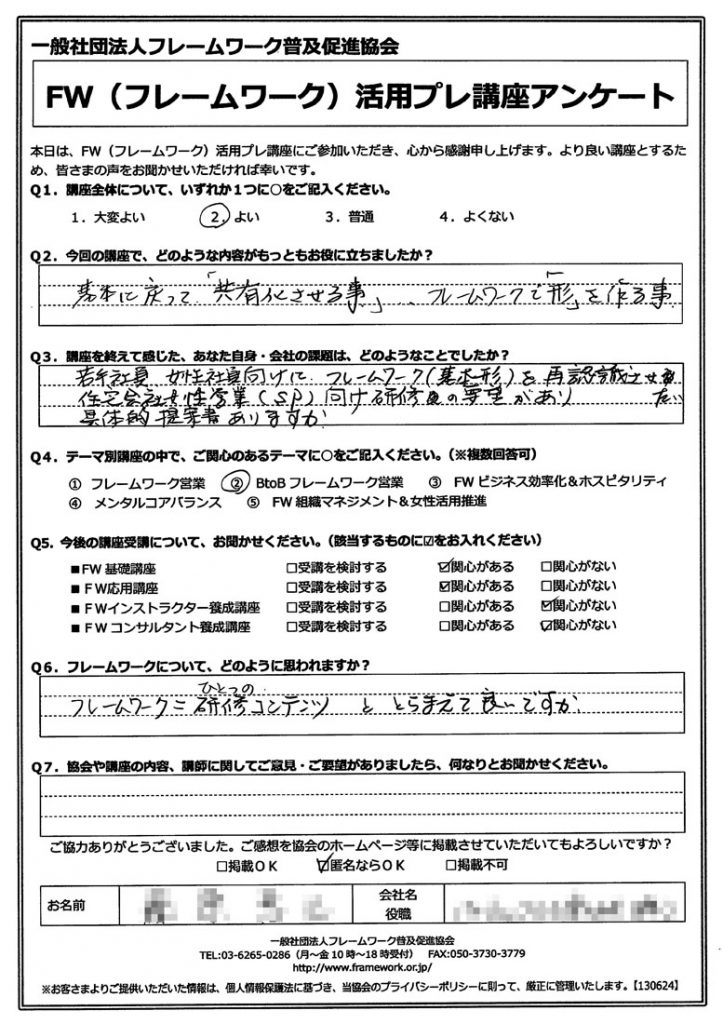 一般社団法人フレームワーク普及促進協会
FW（フレームワーク）活用プレ講座アンケート
本日は、FW（フレームワーク）活用プレ講座にご参加いただき、心から感謝申し上げます。より良い講座とするた
め、皆さまの声をお聞かせいただければ幸いです。
Q1．講座全体について、いずれか１つに○をご記入ください。
1．大変よい　2．よい　3．普通　4．よくない
Q2．今回の講座で、どのような内容がもっともお役に立ちましたか？
基本に戻って「共有化させる事」、フレームワークで「形」を作る事
Q3．講座を終えて感じた、あなた自身・会社の課題は、どのようなことでしたか？
若手社員 女性社員向けに フレームワーク(基本形)を再認識させ
たい
住宅会社女性営業(SP)向け研修の要望があり
具体的提案書ありますか
Q4．テーマ別講座の中で、ご関心のあるテーマに○をご記入ください。（※複数回答可）
① フレームワーク営業　② BtoB フレームワーク営業　③ FW ビジネス効率化＆ホスピタリティ
④ メンタルコアバランス　⑤ FW 組織マネジメント＆女性活用推進
Q5．今後の講座受講について、お聞かせください。（該当するものに☑をお入れください）
■FW 基礎講座　□受講を検討する　☑関心がある　□関心がない
■ＦＷ応用講座　□受講を検討する　☑関心がある　□関心がない
■ＦＷインストラクター養成講座　□受講を検討する　□関心がある　☑関心がない
■ＦＷコンサルタント養成講座　□受講を検討する　□関心がある　☑関心がない
Q6．フレームワークについて、どのように思われますか？
ひとつの
フレームワーク＝研修コンテンツ と とらまえて良いですか
Q7．協会や講座の内容、講師に関してご意見・ご要望がありましたら、何なりとお聞かせください。
ご協力ありがとうございました。ご感想を協会のホームページ等に掲載させていただいてもよろしいですか？
□掲載ＯＫ　☑匿名ならＯＫ　□掲載不可
お名前
会社名
役職
一般社団法人フレームワーク普及促進協会
TEL:03-6265-0286（月～金 10 時～18 時受付）　FAX:050-3730-3779
http://www.framework.or.jp/
※お客さまよりご提供いただいた情報は、個人情報保護法に基づき、当協会のプライバシーポリシーに則って、厳正に管理いたします。【130624】